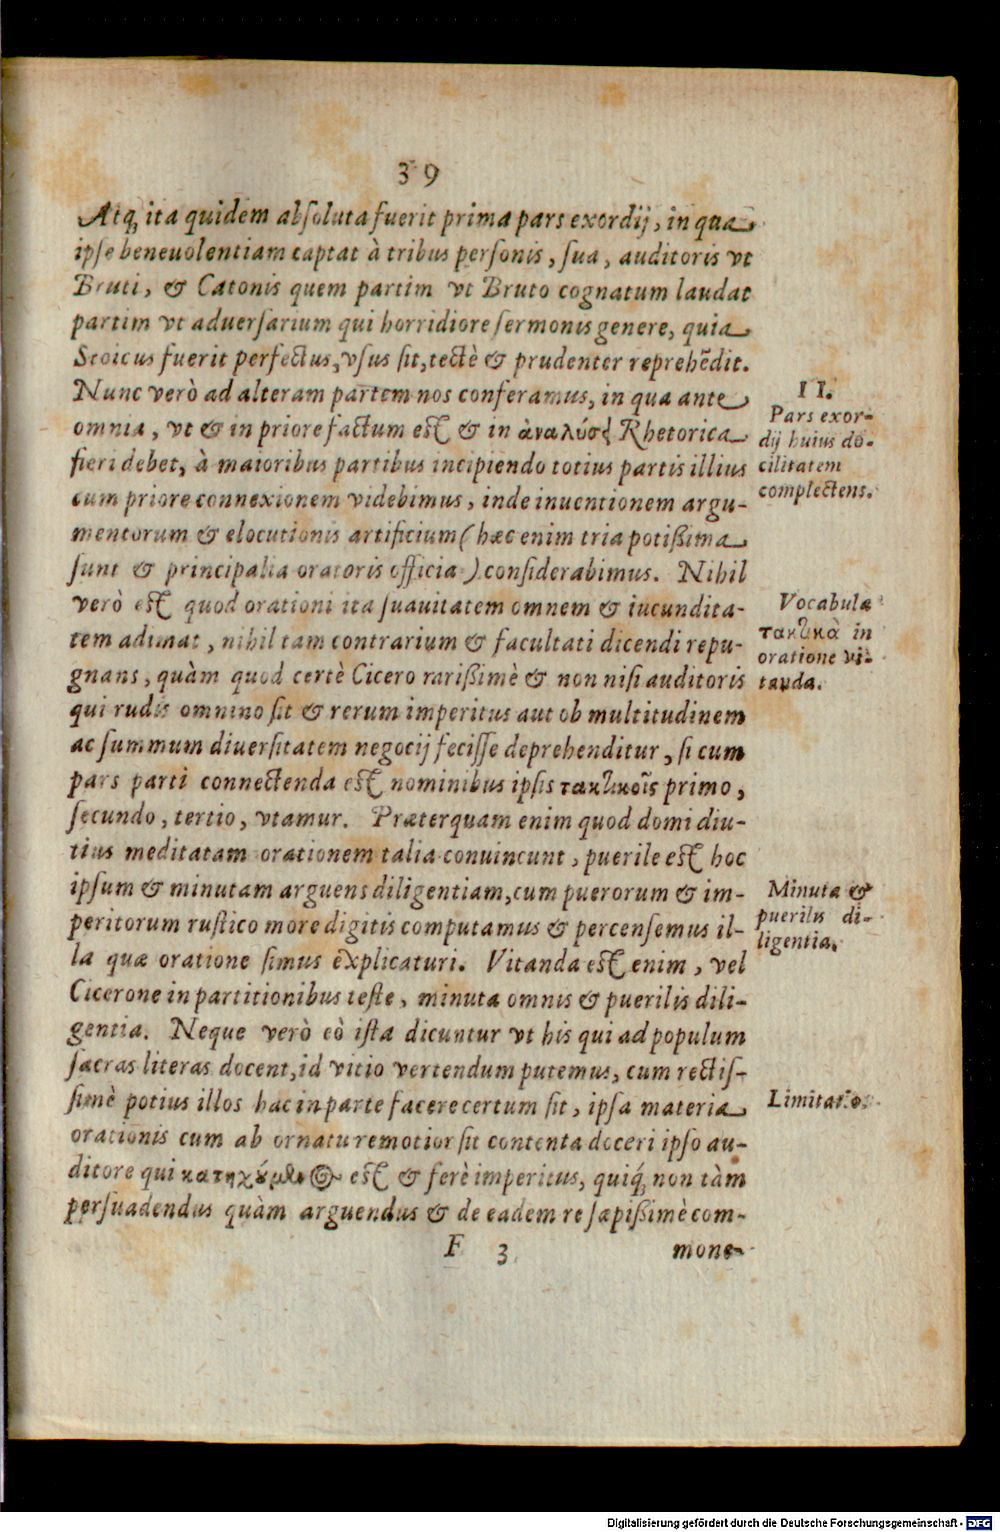 39
Atq; ita quidem absoluta fuerit prima pars exordij, in qua
ipse beneuolentiam captat à tribus personis, sua, auditoris vt
Bruti, & Catonis quem partim vt Bruto cognatum laudat
partim vt aduersarium qui horridiore sermonis genere, quia
Stoicus fuerit perfectus, vsus sit, tectè & prudenter reprehẽdit.
Nunc verò ad alteram partem nos conferamus, in qua ante
omnia, vt & in priore factum est & in ἀναλύσει Rhetorica
fieri debet, à maioribus partibus incipiendo totius partis illius
cum priore connexionem videbimus, inde inuentionem argu-
mentorum & elocutionis artificium (hæc enim tria potißima
sunt & principalia oratoris officia) considerabimus. Nihil
verò est quod orationi ita suauitatem omnem & iucundita-
tem adimat, nihil tam contrarium & facultati dicendi repu-
gnans, quàm quod certè Cicero rarißimè & non nisi auditoris
qui rudis omnino sit & rerum imperitus aut ob multitudinem
ac summum diuersitatem negocij fecisse deprehenditur, si cum
pars parti connectenda est nominibus ipsis τακτικοῖς primo,
secundo, tertio, vtamur. Præterquam enim quod domi diu-
tius meditatam orationem talia conuincunt, puerile est hoc
ipsum & minutam arguens diligentiam, cum puerorum & im-
peritorum rustico more digitis computamus & percensemus il-
la quæ oratione simus explicaturi. Vitanda est enim, vel
Cicerone in partitionibus teste, minuta omnis & puerilis dili-
gentia. Neque verò eò ista dicuntur vt his qui ad populum
sacras literas docent, id vitio vertendum putemus, cum rectis-
simè potius illos hac in parte facere certum sit, ipsa materia
orationis cum ab ornatu remotior sit contenta doceri ipso au-
ditore qui κατηχούμενος est & ferè imperitus, quiq́; non tàm
persuadendus quàm arguendus & de eadem re sæpißimè com-
F 3
mone-
II.
Pars exor-
dij huius do-
cilitatem
complectens.
Vocabula
τακτικὰ in
oratione vi-
tanda.
Minuta &
puerilis di-
ligentia.
Limitatio.
Digitalisierung gefördert durch die Deutsche Forschungsgemeinschaft - DFG